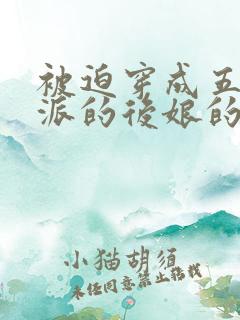 被迫穿成五
派的後娘的
小猫胡须
未经同意禁止转载